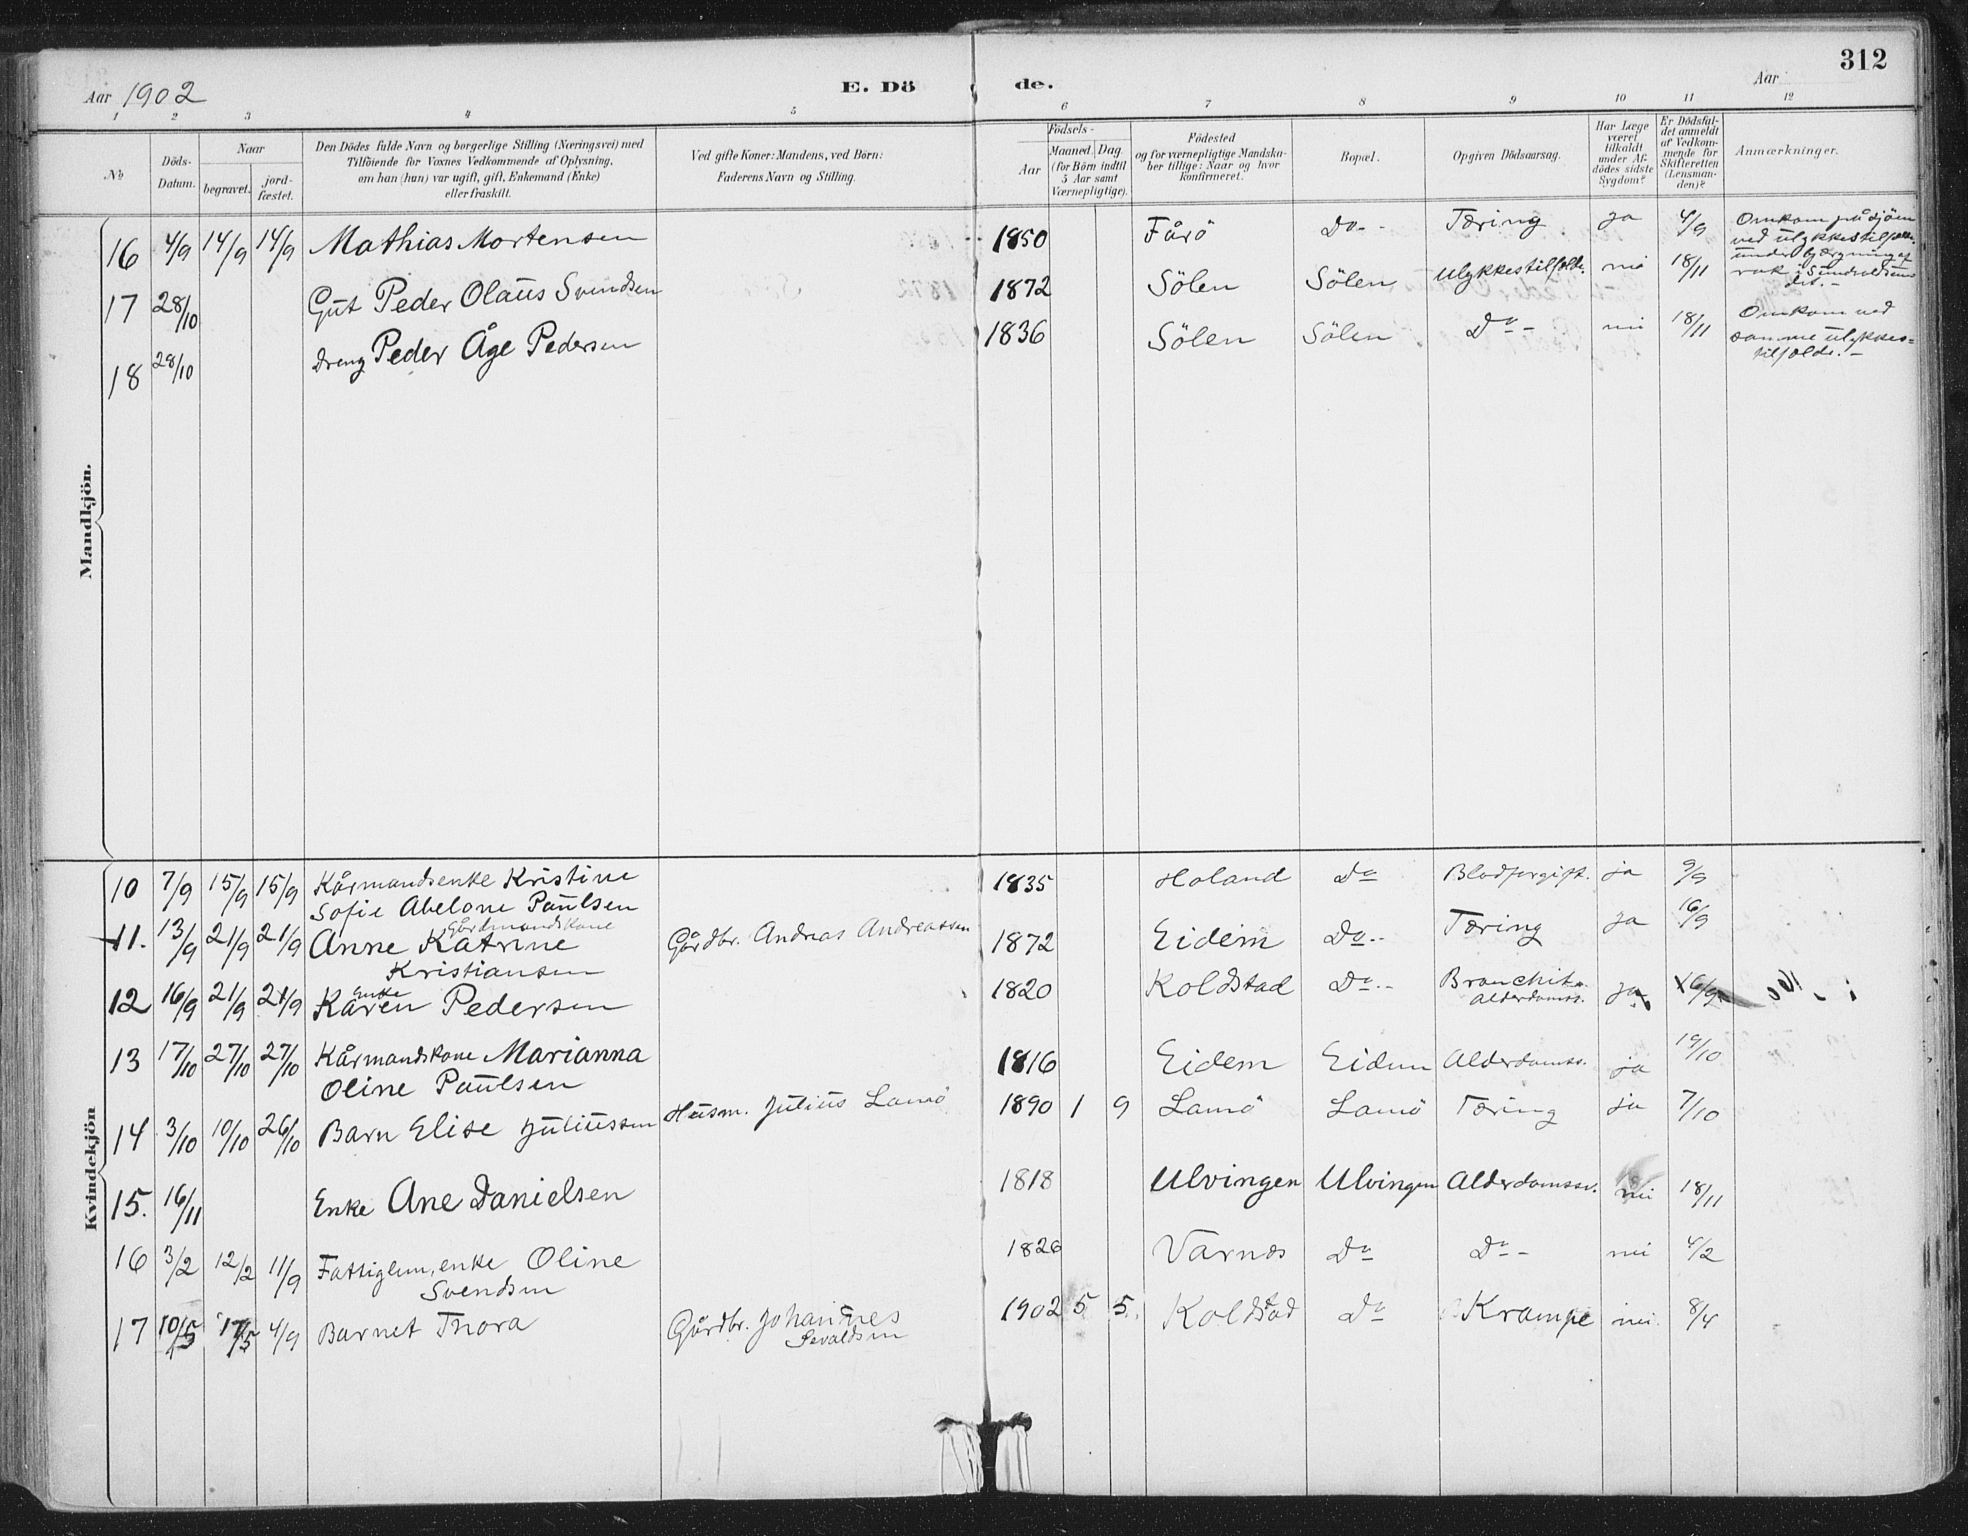 312
Aar 1902
E. Dö de.
Aar
1 2 3 4 5 6 7 8 9 10 11 12
No
Döds-Datum.
Naar begravet. jord-fæstet.
Den Dödes fulde Navn og borgerlige Stilling (Næringsvei) med
Tilföiende for Voxnes Vedkommende af Oplysning,
om han (hun) var ugift, gift, Enkemand (Enke)
eller fraskilt.
Ved gifte Koner: Mandens, ved Börn:
Faderens Navn og Stilling.
Födsels-
Aar Maaned. Dag.
(for Börn indtil
5 Aar samt
Værnepligtige).
Födested
og for værnepligtige Mandska-
ber tillige: Naar og hvor
konfirmeret.
Bopæl.
Opgiven Dödsaarsag.
Har Læge
været
tilkaldt
under Af-
dödes sidste
Sygdom?
Er Dödsfal-
det anmeldt
af Vedkom-
mende for
Skifteretten
(Lensman-
den)?
Anmærkninger.
Mandkjön.
16 4/9 14/9 14/9 Mathias Mortensen 1850 Fårö Do Tæring ja 4/9
17 28/10 Gut Peder Olaus Svendsen 1872 Sölen Sölen Ulykkestilfælde. nei 18/11 Omkom på sjöen
ved ulykkestilfælde
under bjærgning af
rak i Sundvoldsun
det.-
18 28/10 Dreng Peder Åge Pedersen 1836 Sölen Sölen Do - nei 18/11 Omkom ved
samme ulykkes=
tilfælde.-
Kvindekjön
10 7/9 15/9 15/9 Kårmandsenke Kristine
Sofie Abelone Paulsen 1835 Holand Do Blodforgift. ja 9/9
11. 13/9 21/9 21/9 Gårdmandskone
Anne Katrine
Kristiansen Gårdbr. Andreas Andreassen 1872 Eidem Do Tæring ja 16/9
12 16/9 21/9 21/9 Enke
Karen Pedersen 1820 Koldstad Do Bronchit
alderdomss. ja 16/9
13 17/10 27/10 27/10 Kårmandskone Marianna
Oline Paulsen 1816 Eidem Eidem Alderdomss. ja 19/10
14 3/10 10/10 26/10 Barn Elise Juliussen Husm. Julius Lamö 1890 1 9 Lamö Lamö Tæring ja 7/10
15. 16/11 Enke Ane Danielsen 1818 Ulvingen Ulvingen Alderdomssv. nei 18/11
16 3/2 12/2 11/9 Fattiglem, enke Oline
Svendsen 1826 Varnæs Do Do - nei 4/2
17 10/5 17/5 4/9 Barnet Thora Gårdbr. Johannes
Sevaldsen 1902 5 5. Koldstad Do Krampe nei 8/4